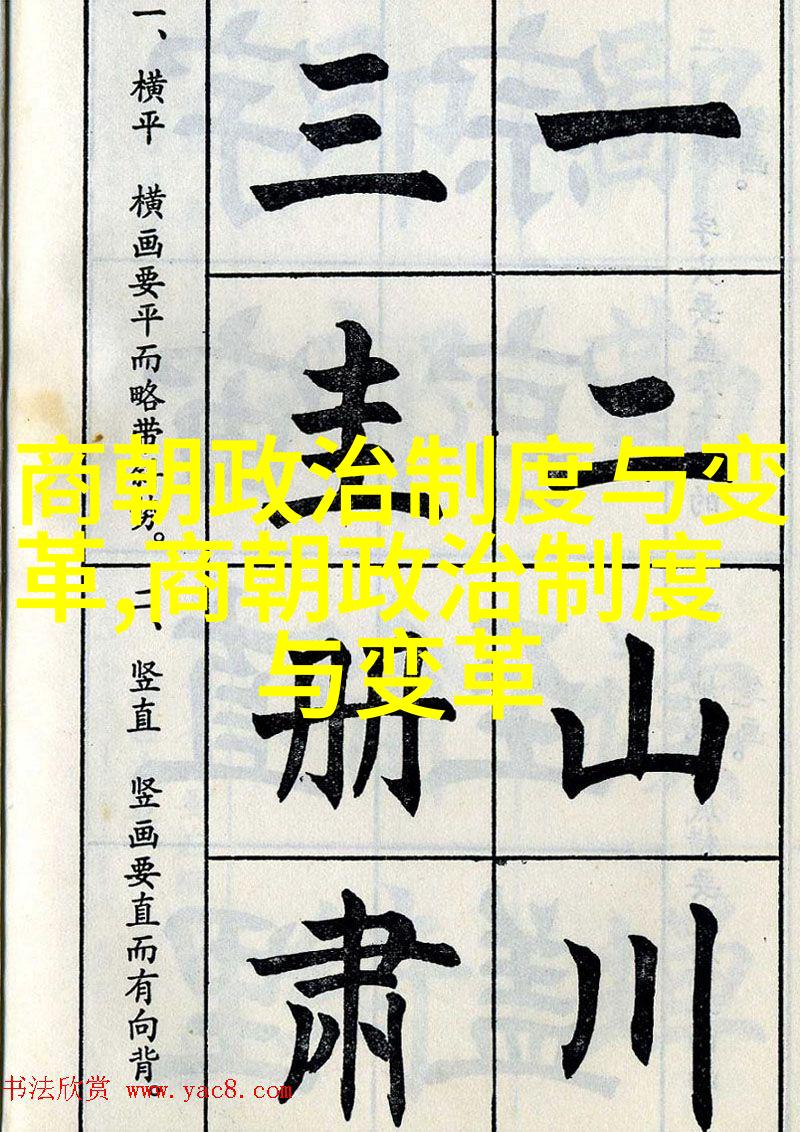 一、横平　横画要平而略带斜势。
二、竖直　竖画要直而有向背。
三 一
二
册 山
肃 川
商朝政治制度与变
革,商朝政治制度
与变革
书法欣赏 www.yac8.com